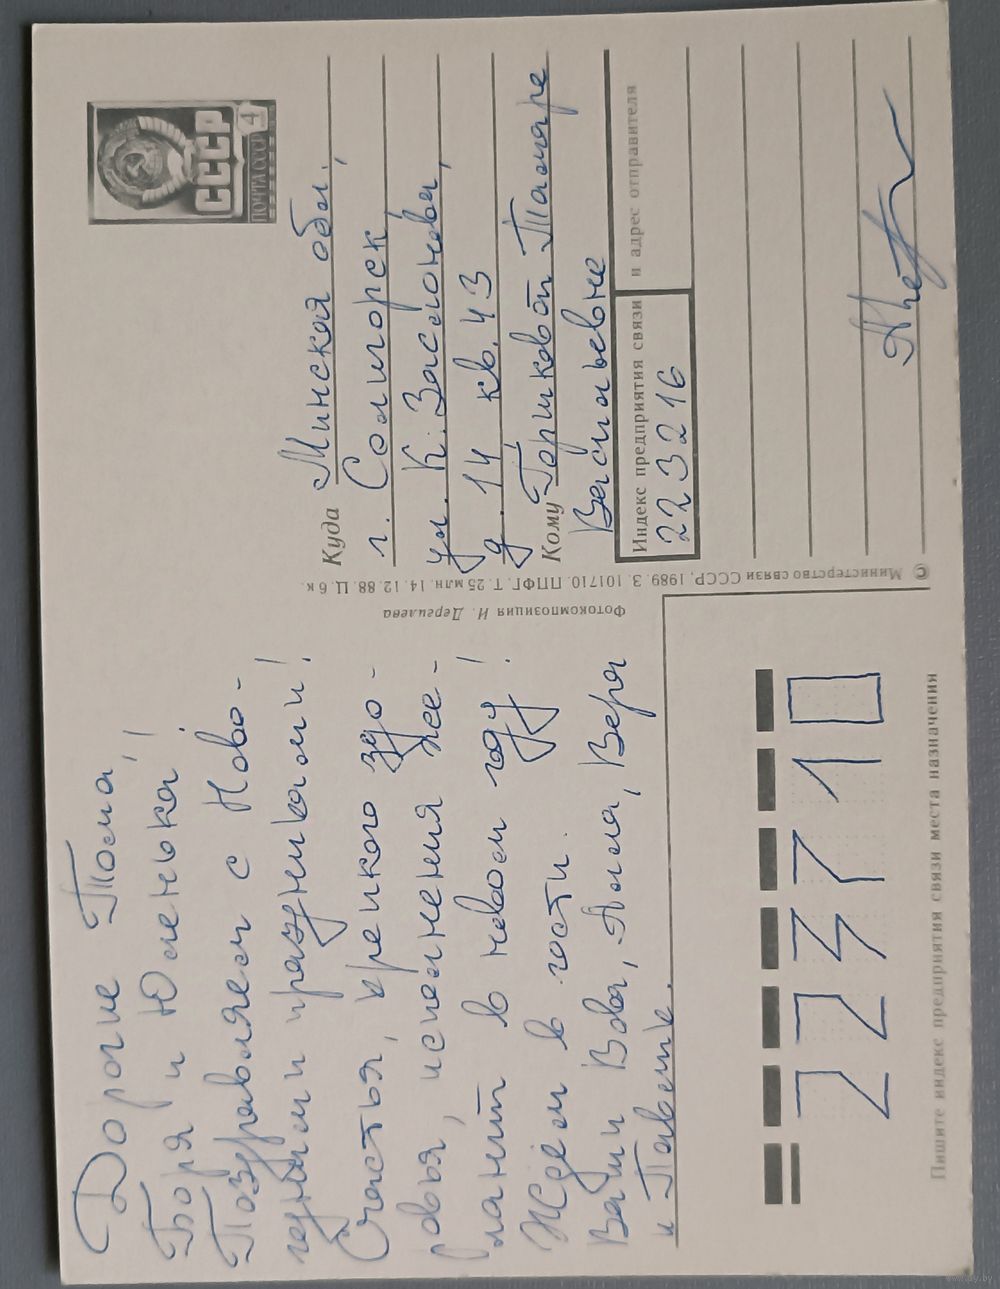 Дорогие Тома,
Боря и Юленька!
Поздравляем с Ново-
годними праздниками!
Счастья, крепкого здо-
ровья, исполнения же-
ланий в новом году!
Ждём в гости.
Ваши Вова, Алла, Вера
и Павлик.
СССР
ПОЧТА СССР
4
Куда Минская обл.,
г. Солигорск
ул. К. Заслонова,
д. 14 кв. 43
Кому Горшковой Тамаре
Васильевне
Индекс предприятия связи и адрес отправителя
223216
Фотокомпозиция И. Дергилева
© Министерство связи СССР, 1989. З. 101710. ППФГ. Т. 25 млн. 14. 12. 88. Ц. 6 к.
223710
Пишите индекс предприятия связи места назначения